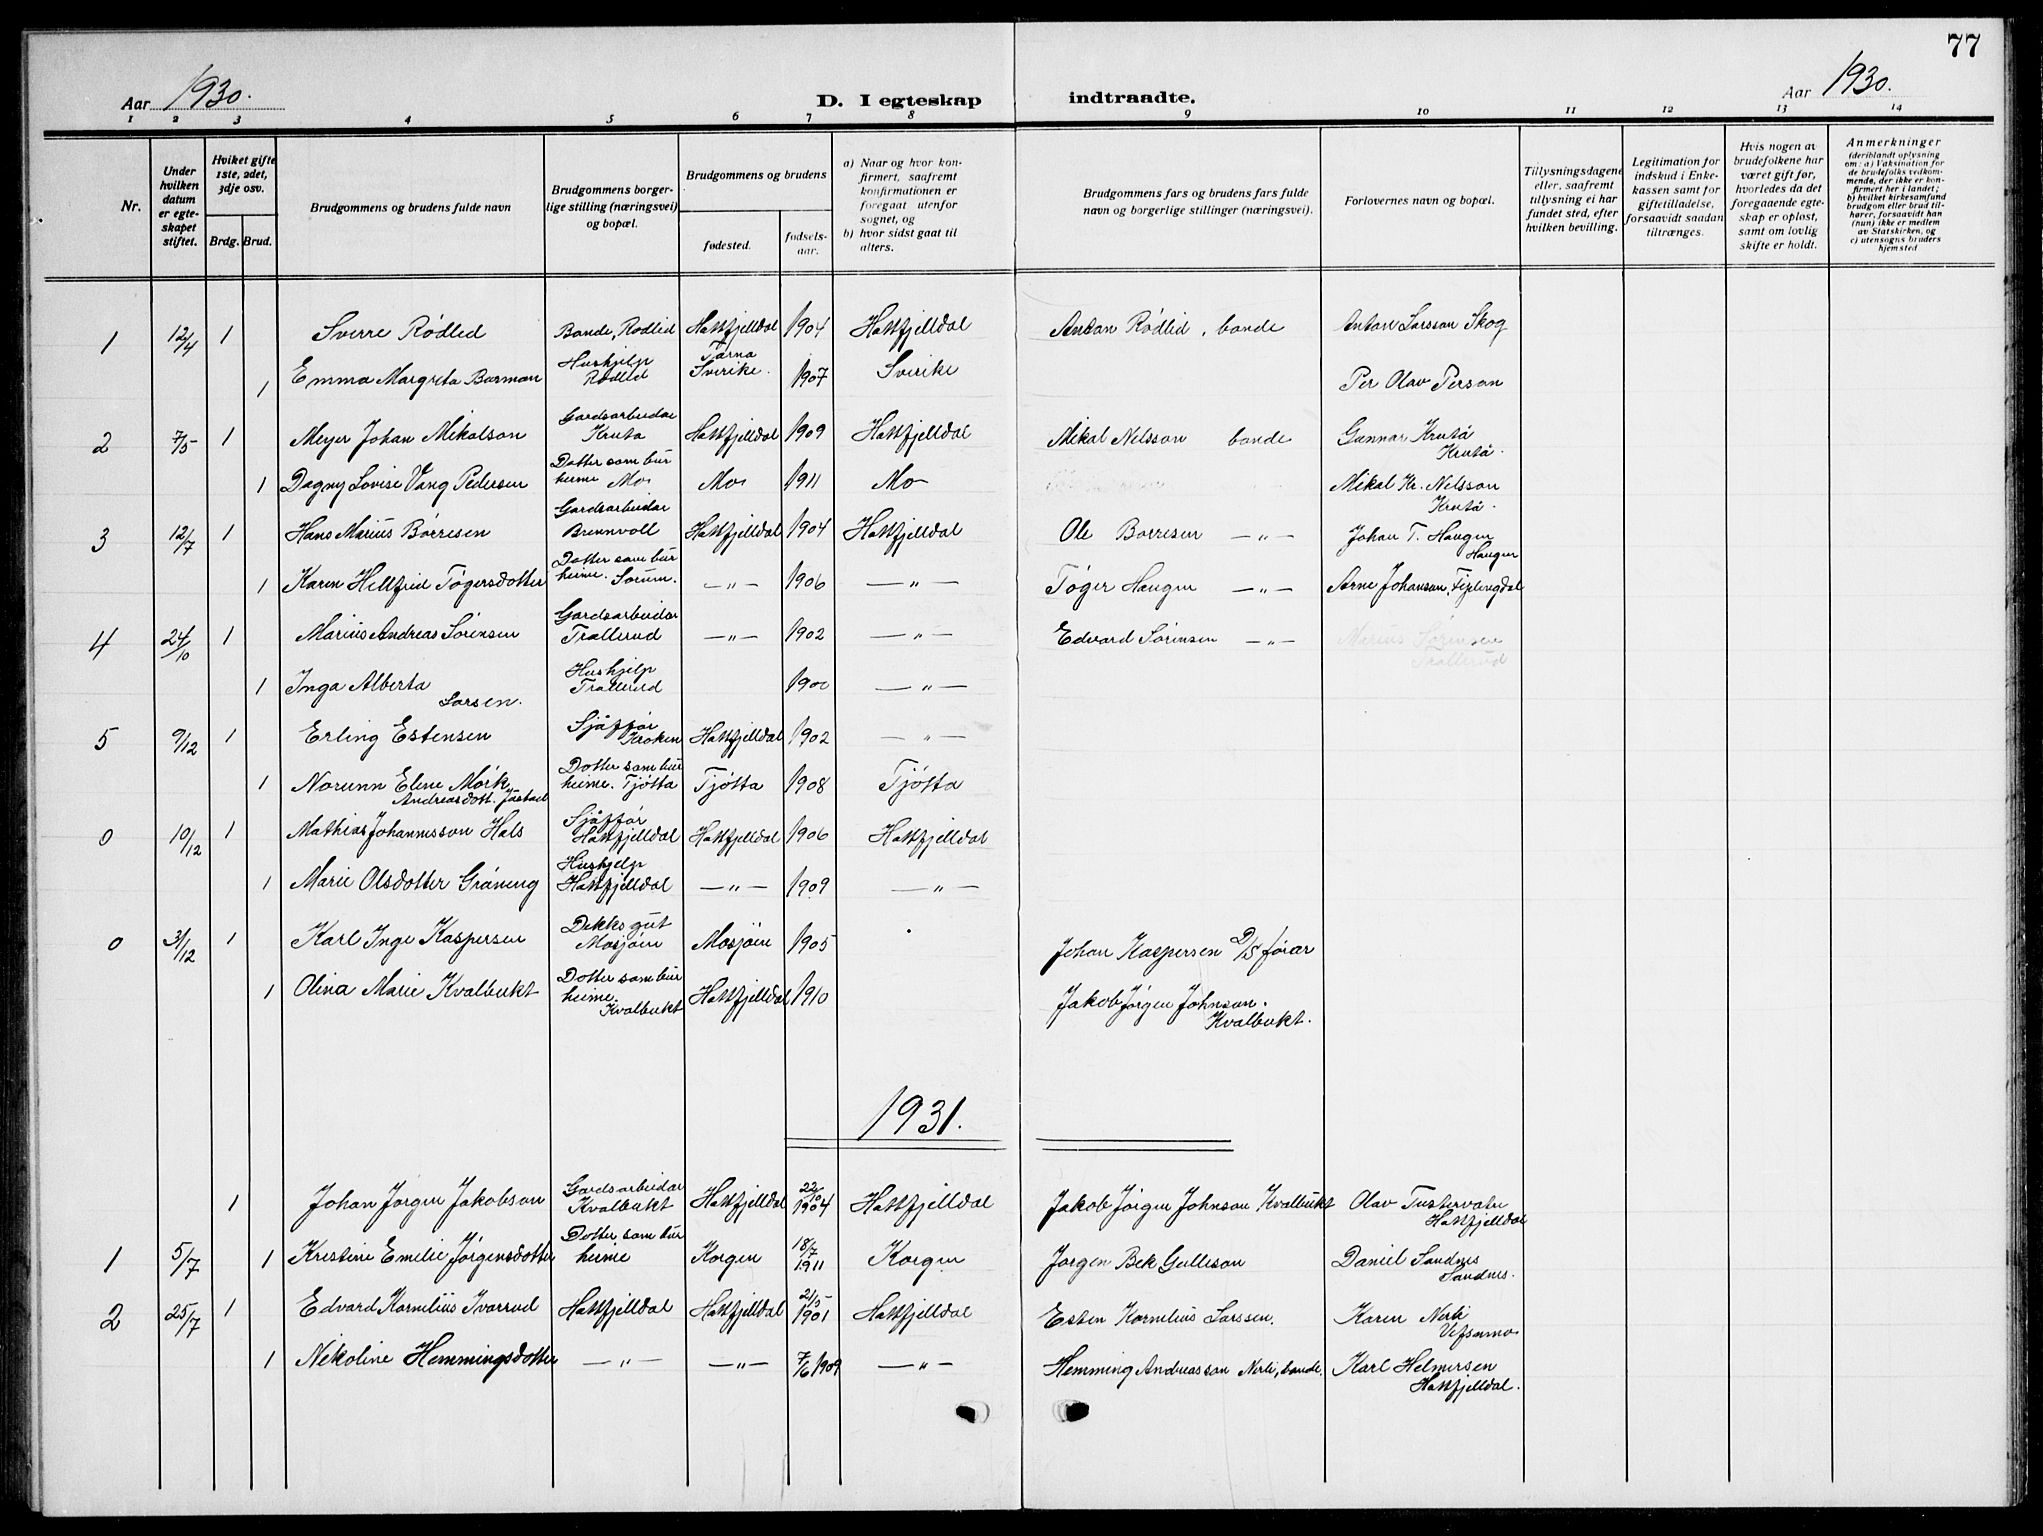 77
Aar 1930.
D. I egteskap indtraadte.
Aar 1930.
1 2 3 4 5 6 7 8 9 10 11 12 13 14
Nr.
Under hvilken datum er egteskapet stiftet.
Hviket gifte 1ste, 2det, 3dje osv.
Brdg. Brud.
Brudgommens og brudens fulde navn
Brudgommens borgerlige stilling (næringsvei) og bopæl.
Brudgommens og brudens
fødested.
fødselsaar.
a) Naar og hvor konfirmert, saafremt konfirmationen er foregaat utenfor sognet, og
b) hvor sidst gaat til alters.
Brudgommens fars og brudens fars fulde navn og borgerlige stillinger (næringsvei).
Forlovernes navn og bopæl.
Tillysningsdagene eller, saafremt tillysning ei har fundet sted, efter hvilken bevilling.
Legitimation for indskud i Enkekassen samt for giftetilladelse, forsaavidt saadan tiltrænges.
Hvis nogen av brudefolkene har været gift før, hvorledes da det foregaaende egteskap er opløst, samt om lovlig skifte er holdt.
Anmerkninger
(deriblandt oplysning om: a) Vaksination for de brudefolks vedkommende, der ikke er konfirmert her i landet; b) hvilket kirkesamfund brudgom eller brud tilhører, forsaavidt han (hun) ikke er medlem av Statskirken, og c) utensogns bruders hjemsted
1 12/4 1 Sverre Rødlid Bonde, Rødlid Hattfjelldal 1904 Hattfjelldal Anton Rødlid, bonde Anton Larsson Skog
1 Emma Margreta Barman Hushjelp Rødlid Tärna Sverike. 1907 Sverike Per Olav Person
2 7/5 1 Meyer Johan Mikalson Gardsarbeidar Krutå Hattfjelldal 1909 Hattfjelldal Mikal Nelsson bonde Gunnar Krutå Krutå.
1 Dagny Lovise Vang Pedersen Dotter som bur heime Mo Mo 1911 Mo Mikal Kr. Nelsson Krutå.
3 12/7 1 Hans Marius Børresen Gardsarbeidar Brennvoll Hattfjelldal 1904 Hattfjelldal Ole Børresen —„— Johan T. Haugen Haugen
1 Karen Hellfrid Tøgersdotter Dotter som bur heime. Sørum. —„— 1906 —„— Tøger Haugen —„— Arne Johanson, Fiplingdal
4 24/10 1 Marius Andreas Sørensen Gardsarbeidar Trallerud —„— 1902 —„— Edvard Sørensen —„— Marius Sørensen Trallerud
1 Inga Alberta Larsen. Hushjelp Trallerud 1900 —„—
5 9/12 1 Erling Estensen Sjåffør Kroken Hattfjelldal 1902 —„—
1 Norunn Eline Mørk Andreasdott. Jåstad Dotter som bur heime. Tjøtta Tjøtta 1908 Tjøtta
0 10/12 1 Mathias Johannesson Hals Sjåffør Hattfjelldal Hattfjelldal 1906 Hattfjelldal
1 Marie Olsdotter Grøneng Hushjelp Hattfjelldal —„— 1909 —„—
0 31/12 1 Karl Inge Kaspersen Dekksgut Mosjøen Mosjøen 1905 Johan Kaspersen D/S førar
1 Olina Marie Kvalbukt Dotter som bur heime. Kvalbukt Hattfjelldal 1910 Jakob Jørgen Johnson. Kvalbukt.
1931.
1 Johan Jørgen Jakobson Gardsarbeidar Kvalbukt Hattfjelldal 22/10 1904 Hattfjelldal Jakob Jørgen Johnson Kvalbukt Olav Tustervatn Hattfjelldal
1 5/7 1 Kristine Emilie Jørgensdotter Dotter som bur heime Korgen 18/7 1911 Korgen Jørgen Bek Gulleson Daniel Sandnes Sandnes.
2 25/7 1 Edvard Kornelius Ivarrud Hattfjelldal Hattfjelldal 21/5 1901 Hattfjelldal Esten Kornelius Larssen. Karen Nerli Vefsnmo
1 Nekoline Hemmingsdotter —„— —„— 7/6 1909 —„— Hemming Andreasson Nerli, bonde. Karl Helmersen Hattfjelldal.